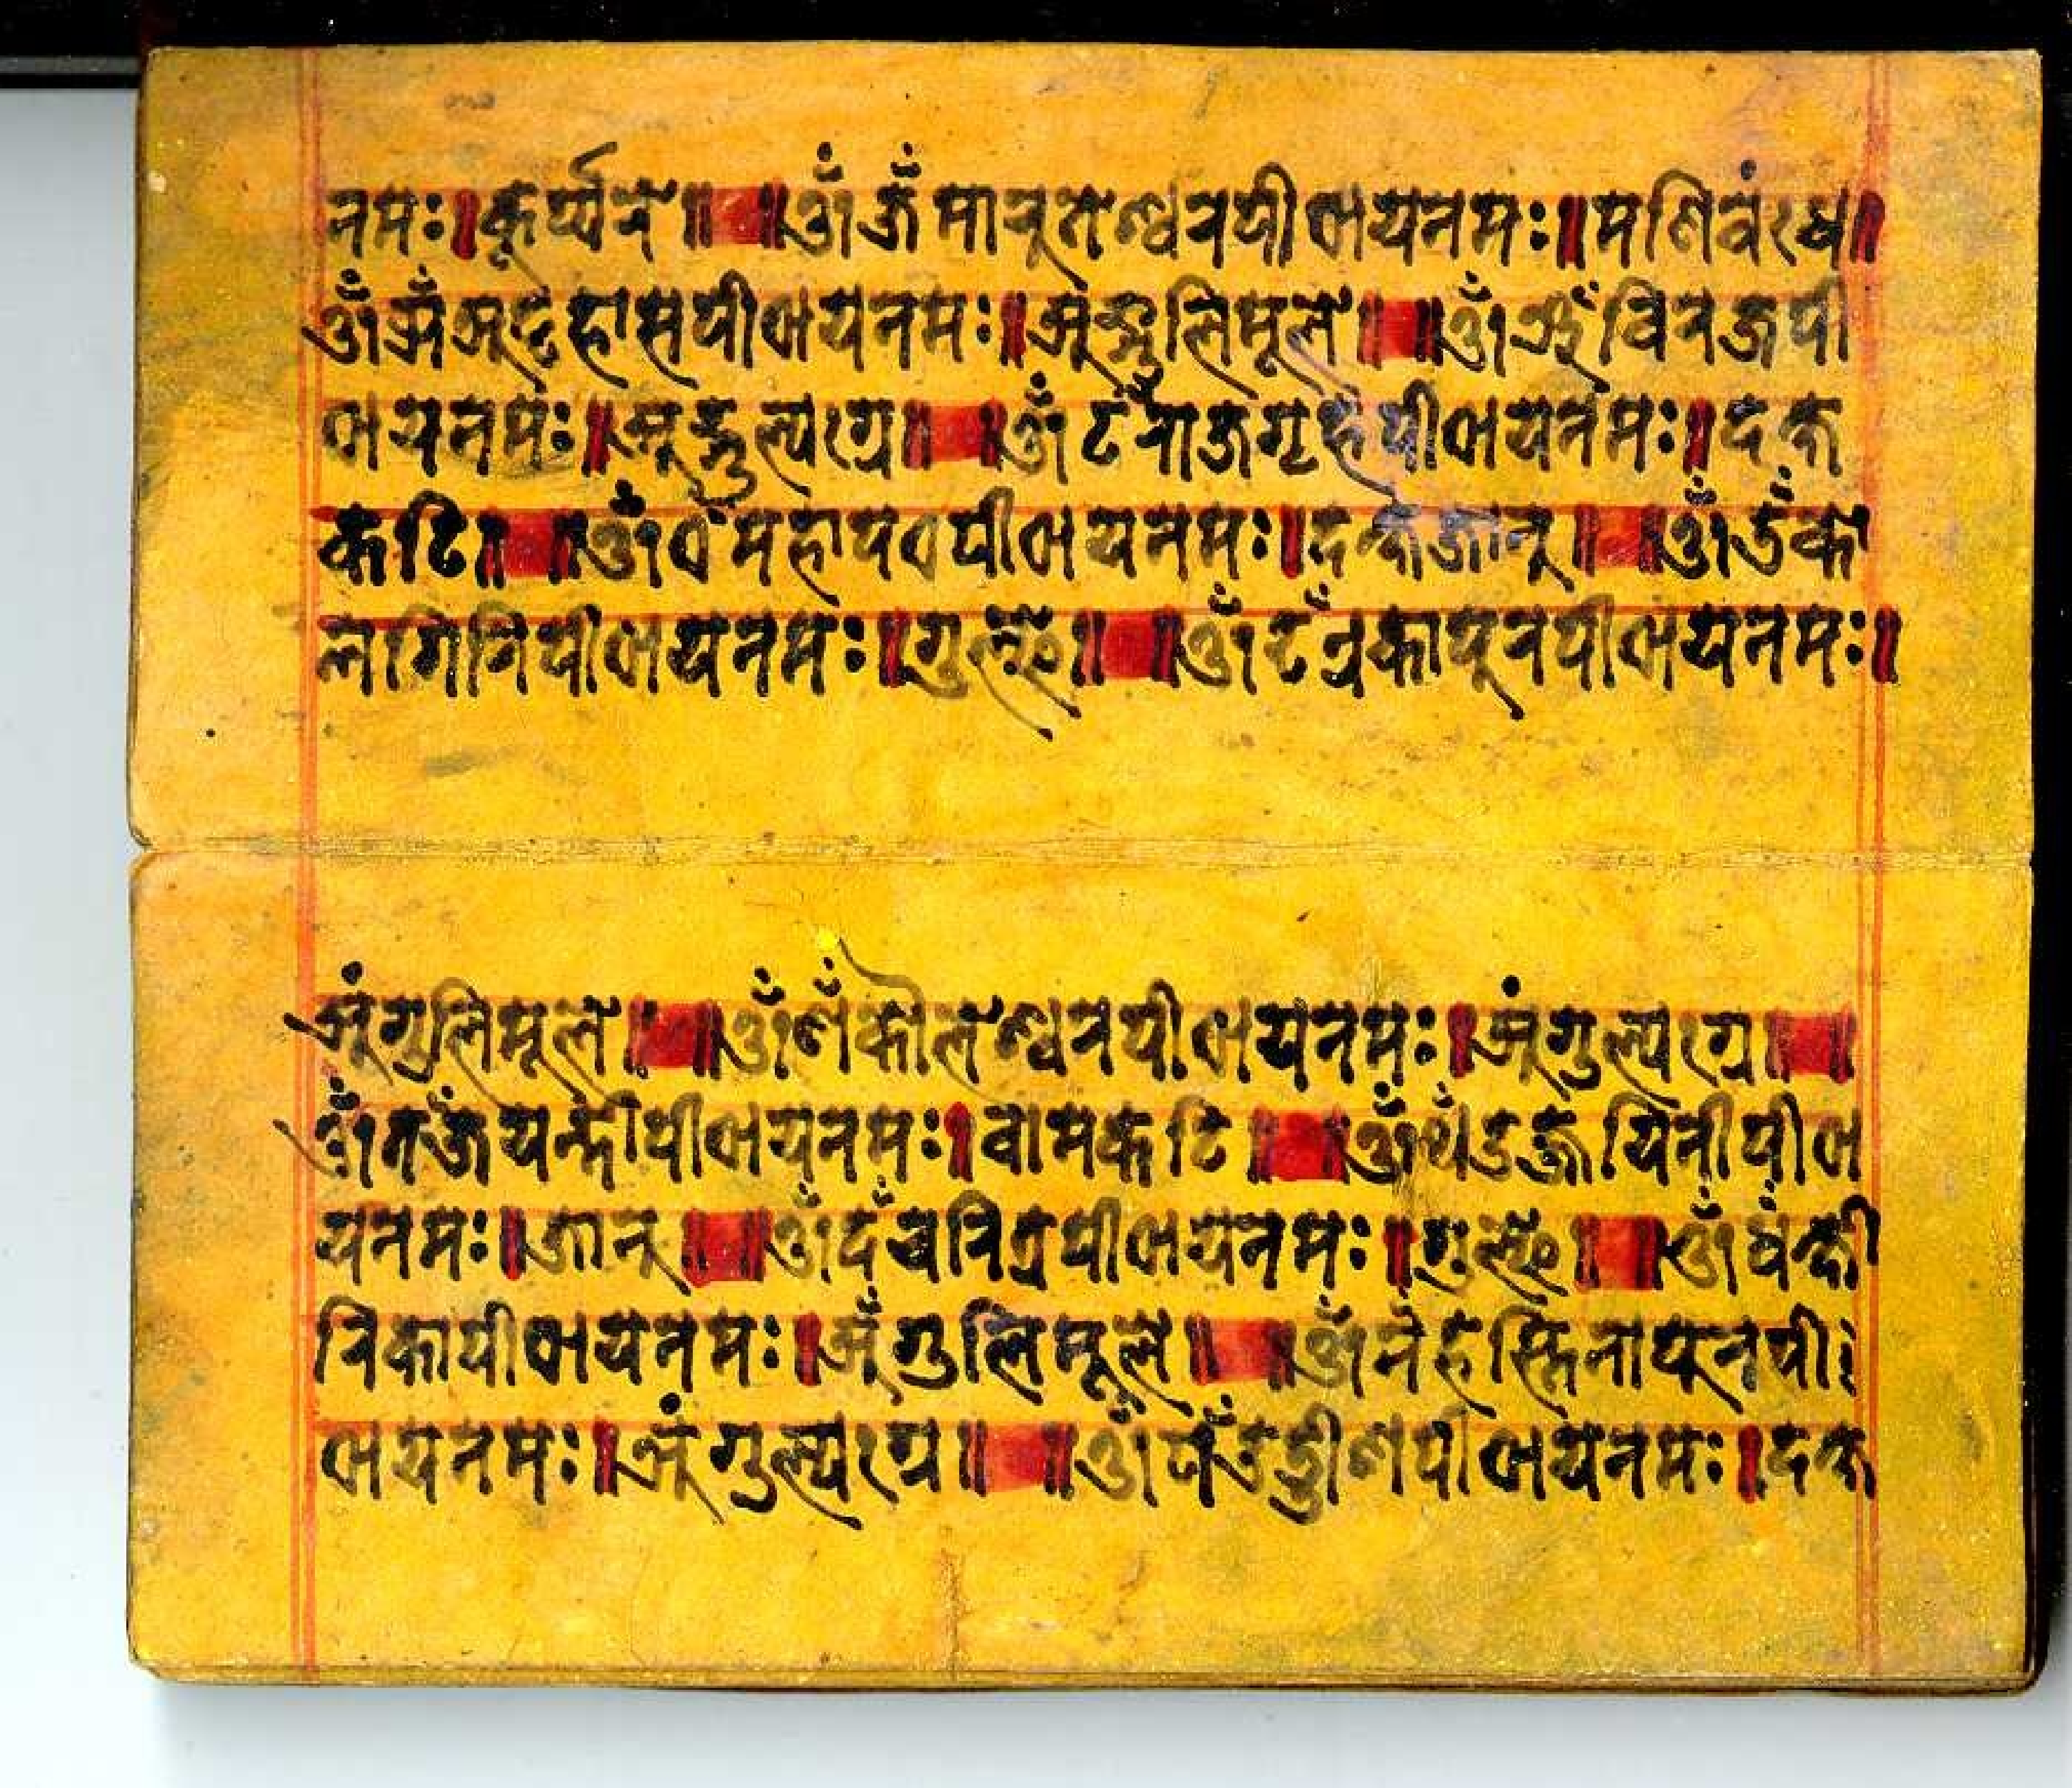 नमः ॥ कूर्प्परे ॥ ॥ ॐ जँ मारुतेश्वरपीठाय नमः ॥ मणिवंरध ॥
ॐ झँ अट्टहासपीठाय नमः ॥ अङ्गुलिमूले ॥ ॥ ॐ ञँ विरजपी
ठाय नमः ॥ अङ्गुल्यरग्र ॥ ॥ ॐ टँ राजगृहपीठाय नमः ॥ दक्ष
कटि ॥ ॥ ॐ ठँ महापथपीठाय नमः ॥ दक्षजानू ॥ ॥ ॐ डँ का
लगिरिपीठाय नमः ॥ गुल्फ ॥ ॥ ॐ ढँ एकापूरपीठाय नमः ॥
अंगुलिमूले ॥ ॥ ॐ णँ कोलेश्वरपीठाय नमः ॥ अंगुल्यरग्र ॥ ॥
ॐ तँ जयन्तीपीठाय नमः । वामकटि ॥ ॥ ॐ थँ उज्जयिनीपीठा
य नमः ॥ जानू ॥ ॥ ॐ दँ चरित्रपीठाय नमः ॥ गुल्फ ॥ ॥ ॐ धँ क्षी
रिकापीठाय नमः ॥ अंगुलिमूले ॥ ॥ ॐ नँ हस्तिनापूरपी
ठाय नमः ॥ अंगुल्यरग्र ॥ ॥ ॐ पँ उड्डीशपीठाय नमः ॥ दक्ष